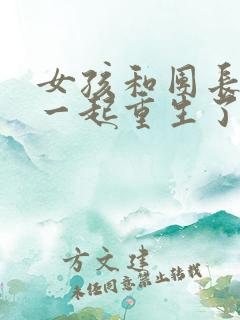 女孩和团長
一起重生了
方文建
未经同意禁止转载